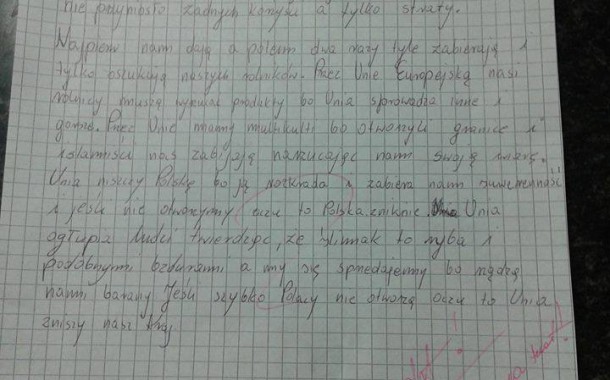 nie przyniosło żadnych korzyści a tylko straty.
Najpierw nam dają a potem dwa razy tyle zabierają i
tylko oszukują naszych rolników. Przez Unie Europejską nasi
rolnicy muszą wyrzucać produkty bo Unia sprowadza inne i
gorsze. Przez Unie mamy multikulti bo otworzyli granice i
islamiści nas zabijają narzucając nam swoją wiarę.
Unia niszczy Polskę bo ją rozkrada i zabiera nam suwerenność
i jeśli nie otworzymy oczu to Polska zniknie. Unia
ogłupia ludzi twierdząc, że ślimak to ryba i
podobnymi bzdurami a my się sprzedajemy bo rządzą
nami barany. Jeśli szybko Polacy nie otworzą oczu to Unia
zniszy nasz kraj